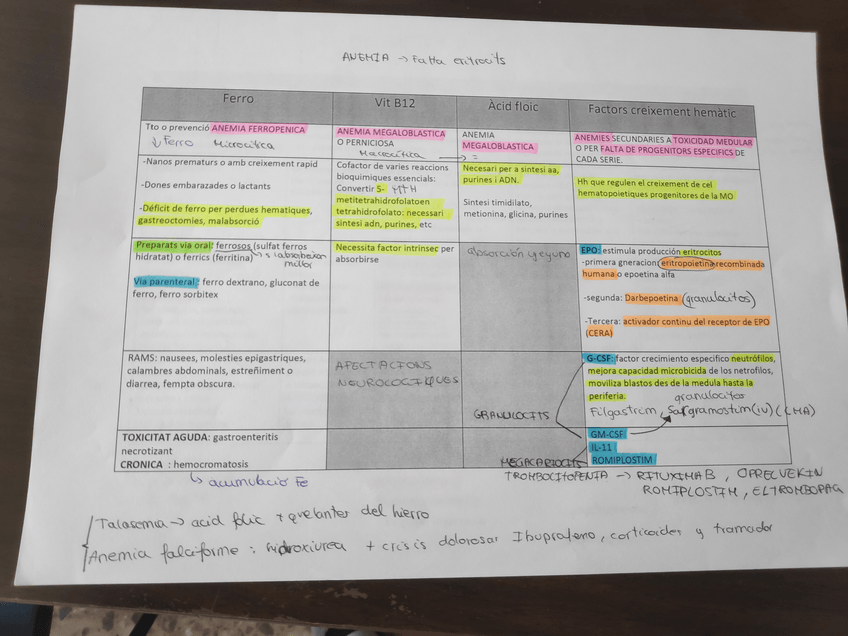 ANEMIA → Falta eritrocits
Ferro
Vit B12
Àcid floic
Factors creixement hemàtic
Tto o prevenció ANEMIA FERROPENICA
↓ Ferro Microcítica
ANEMIA MEGALOBLASTICA
O PERNICIOSA
Macrocítica → =
ANEMIA
MEGALOBLASTICA
ANEMIES SECUNDARIES A TOXICIDAD MEDULAR
O PER FALTA DE PROGENITORS ESPECIFICS DE
CADA SERIE.
-Nanos prematurs o amb creixement rapid
-Dones embarazades o lactants
-Déficit de ferro per perdues hematiques,
gastreoctomies, malabsorció
Cofactor de varies reaccions
bioquimiques essencials:
Convertir 5- MTH
metitetrahidrofolatoen
tetrahidrofolato: necessari
sintesi adn, purines, etc
Necesari per a sintesi aa,
purines i ADN.
Sintesi timidilato,
metionina, glicina, purines
Hh que regulen el creixement de cel
hematopoietiques progenitores de la MO
Preparats via oral: ferrosos (sulfat ferros
hidratat) o ferrics (ferritina)
↳ s'absorbeixen
millor
Via parenteral: ferro dextrano, gluconat de
ferro, ferro sorbitex
Necessita factor intrinsec per
absorbirse
absorción yeyuno
EPO: estimula producción eritrocitos
-primera gneracion: eritropoietina recombinada
humana o epoetina alfa
-segunda: Darbepoetina (granulocitos)
-Tercera: activador continu del receptor de EPO
(CERA)
RAMS: nausees, molesties epigastriques,
calambres abdominals, estreñiment o
diarrea, fempta obscura.
AFECTACIONS
NEUROLOGIQUES
GRANULOCITS
G-CSF: factor crecimiento especifico neutrófilos,
mejora capacidad microbicida de los netrofilos,
moviliza blastos des de la medula hasta la
periferia.
granulocitos
Filgastrim, Sargramostim (iv) (LMA)
TOXICITAT AGUDA: gastroenteritis
necrotizant
CRONICA : hemocromatosis
↳ acumulació Fe
GM-CSF
IL-11
MEGACARIOCITS
ROMIPLOSTIM
TROMBOCITOPENIA → RITUXIMAB, OPRELVEKIN
ROMIPLOSTIM, ELTROMBOPAG
Talasemia → acid fólic + quelantes del hierro
Anemia falciforme : hidroxiurea + crisis dolorosas Ibuprofeno, corticoides y tramadol